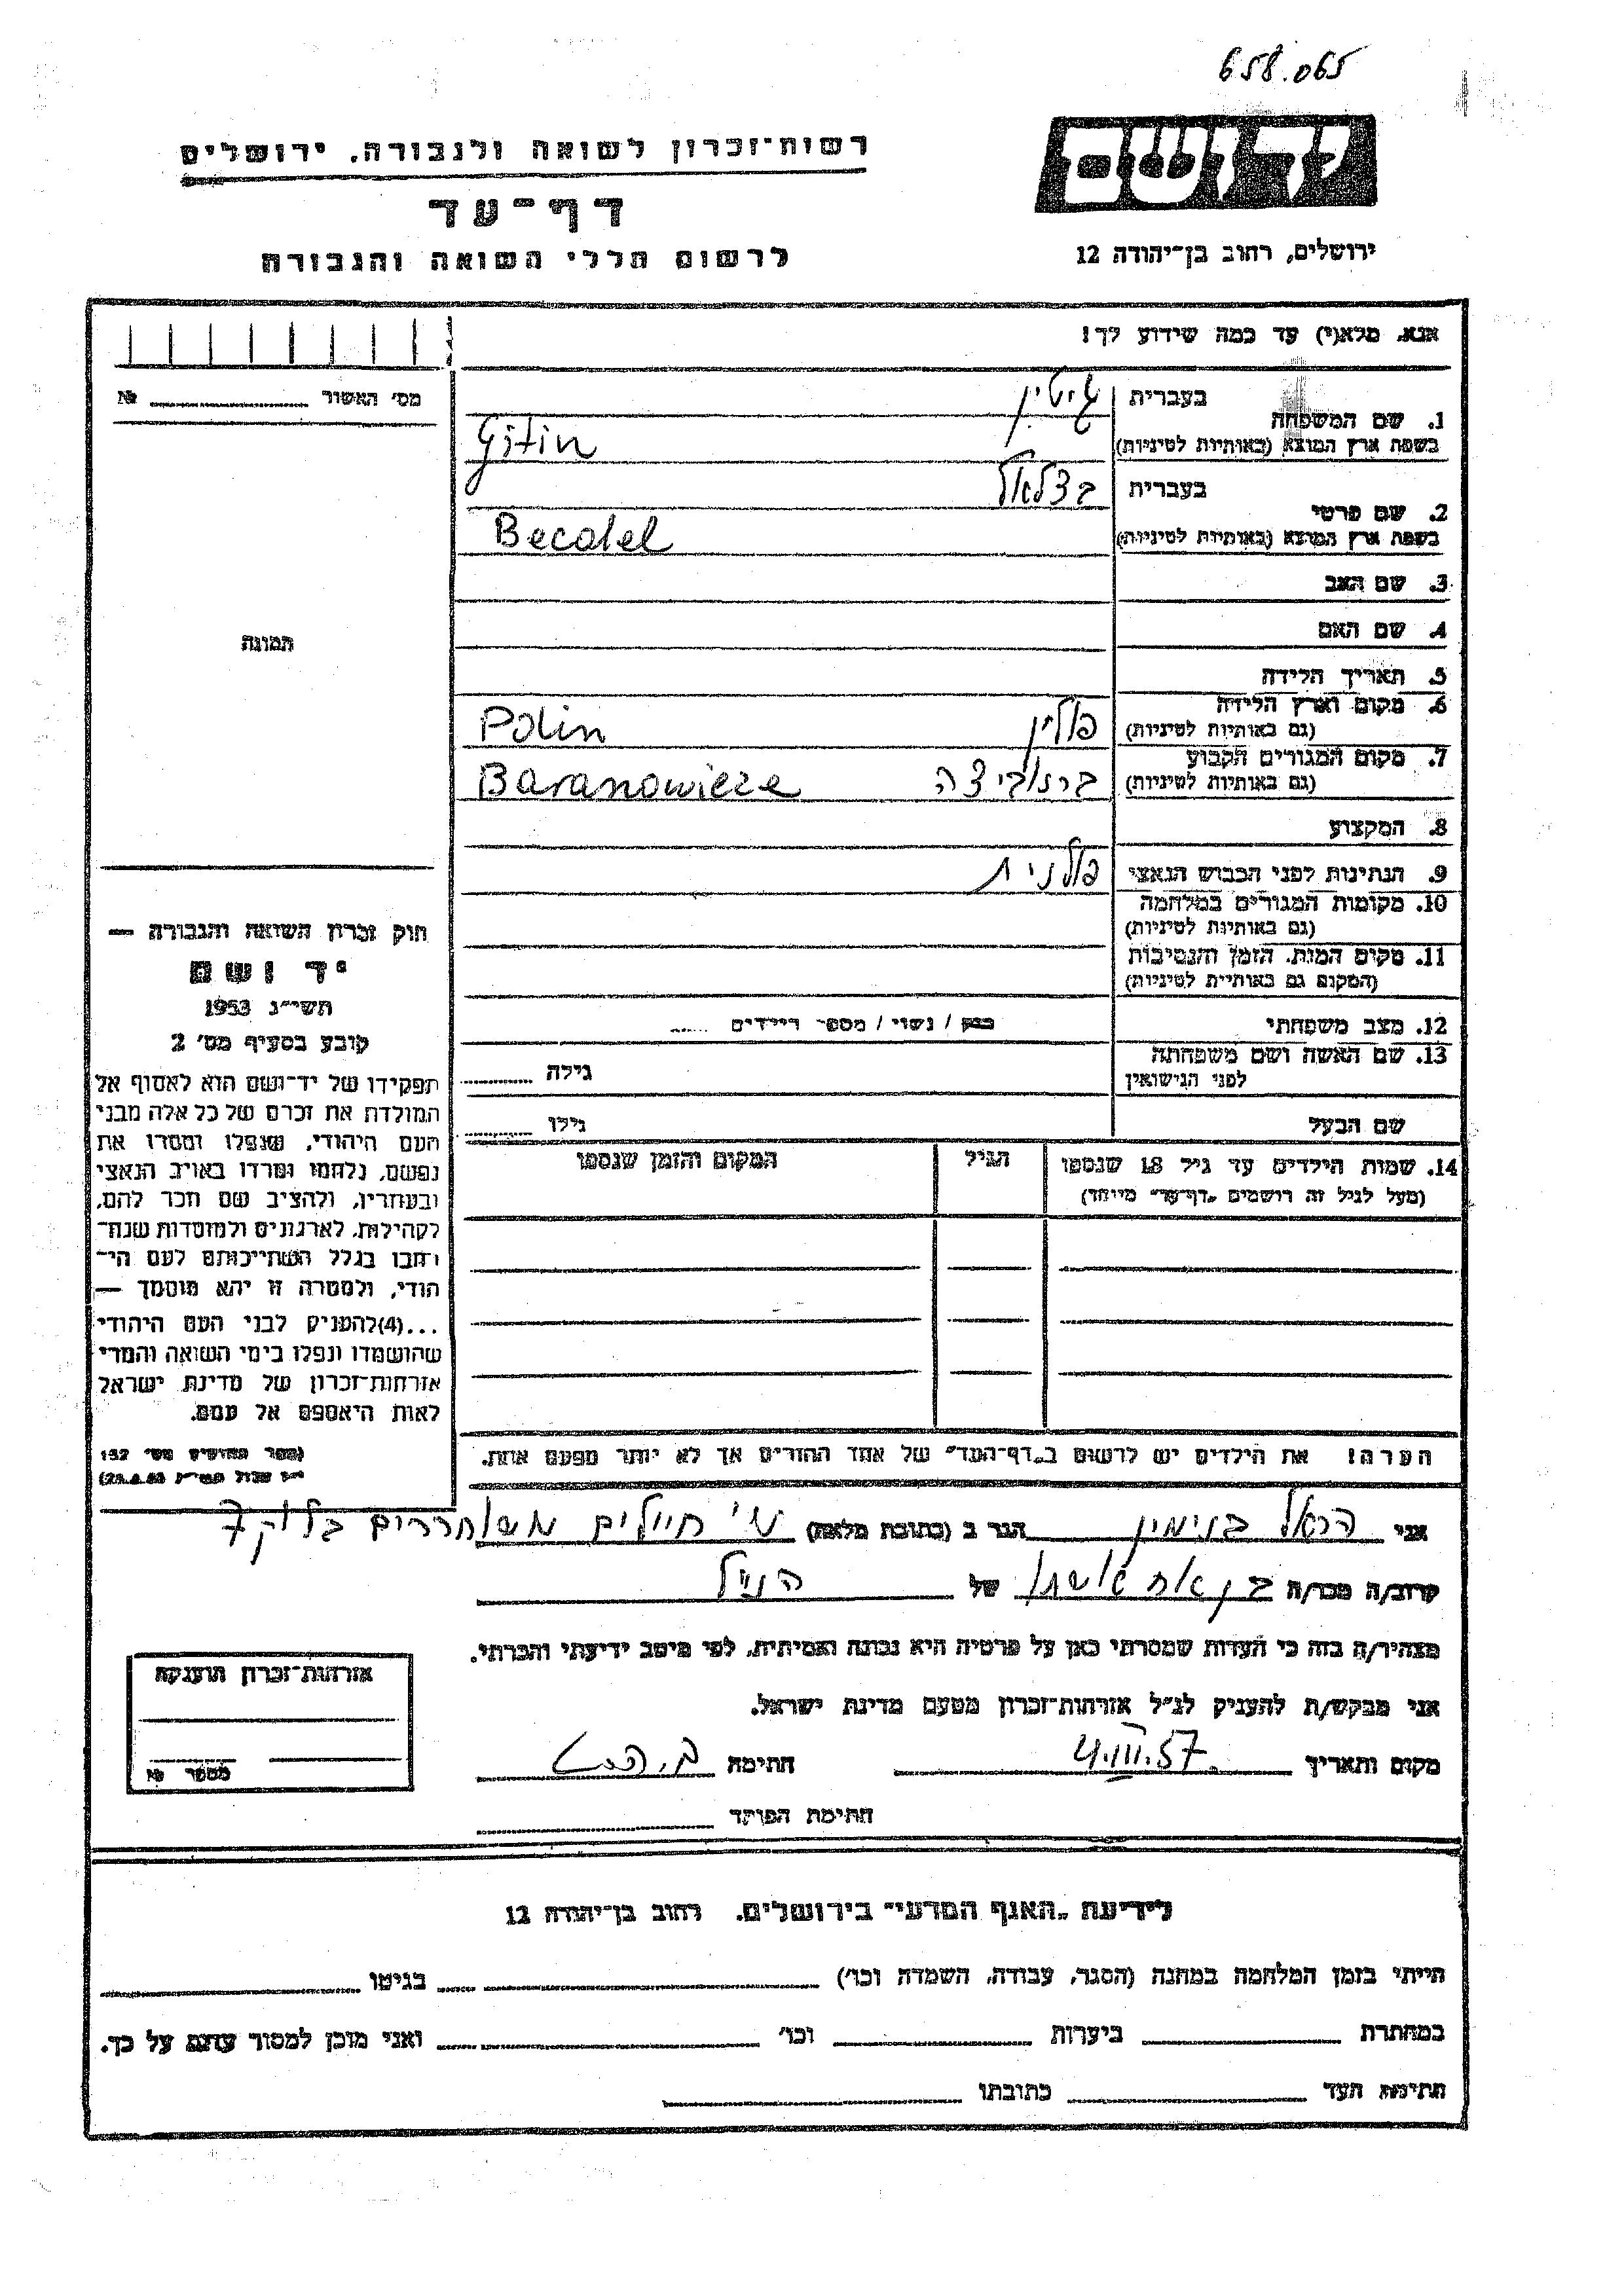 658.065
רשות־זכרון לשואה ולגבורה, ירושלים
דף־עד
לרשום חללי השואה והגבורה
יד ושם
ירושלים, רחוב בן־יהודה 12
אנא, מלא(י) עד כמה שידוע לך!
מס׳ האשור № 
1. שם המשפחה בעברית גיטין
בשפת ארץ המוצא (באותיות לטיניות) Gitin
2. שם פרטי בעברית בצלאל
בשפת ארץ המוצא (באותיות לטיניות) Becalel
3. שם האב
4. שם האם
תמונה
5. תאריך הלידה
6. מקום וארץ הלידה
(גם באותיות לטיניות) פולין Polin
7. מקום המגורים הקבוע
(גם באותיות לטיניות) ברנוביצה Baranowicze
8. המקצוע
9. הנתינות לפני הכבוש הנאצי פולנית
10. מקומות המגורים במלחמה
(גם באותיות לטיניות)
11. מקום המות, הזמן והנסיבות
(המקום גם באותיות לטיניות)
12. מצב משפחתי רווק / נשוי / מספר הילדים
13. שם האשה ושם משפחתה
לפני הנישואין גילה
שם הבעל גילו
14. שמות הילדים עד גיל 18 שנספו הגיל המקום והזמן שנספו
(מעל לגיל זה רושמים „דף־עד״ מיוחד)
חוק זכרון השואה והגבורה —
יד ושם
תשי״ג 1953
קובע בסעיף מס׳ 2
תפקידו של יד־ושם הוא לאסוף אל
המולדת את זכרם של כל אלה מבני
העם היהודי, שנפלו ומסרו את
נפשם, נלחמו ומרדו באויב הנאצי
ובעוזריו, ולהציב שם וזכר להם,
לקהילות, לארגונים ולמוסדות שנח־
רבו בגלל השתייכותם לעם הי־
הודי, ולמטרה זו יהא מוסמך —
...(4)להעניק לבני העם היהודי
שהושמדו ונפלו בימי השואה והמרי
אזרחות־זכרון של מדינת ישראל
לאות היאספם אל עמם.
(ספר החוקים מס׳ 132
הערה! את הילדים יש לרשום ב„דף־העד״ של אחד ההורים אך לא יותר מפעם אחת.
אני הראל בנימין הגר ב (כתובת מלאה) ש׳ חיילים משוחררים בלוק 7
קרוב/ה מכר/ה בן אח אשתו של הנ״ל
מצהיר/ה בזה כי העדות שמסרתי כאן על פרטיה היא נכונה ואמיתית, לפי מיטב ידיעתי והכרתי.
אני מבקש/ת להעניק לנ״ל אזרחות־זכרון מטעם מדינת ישראל.
מקום ותאריך 4.III.57. חתימה
חתימת הפוקד
אזרחות־זכרון הוענקה
מספר №
לידיעת „האגף המדעי״ בירושלים, רחוב בן־יהודה 12
הייתי בזמן המלחמה במחנה (הסגר, עבודה, השמדה וכו׳) בגיטו
במחתרת ביערות וכו׳ ואני מוכן למסור עדותם על כך.
חתימת העד כתובתו